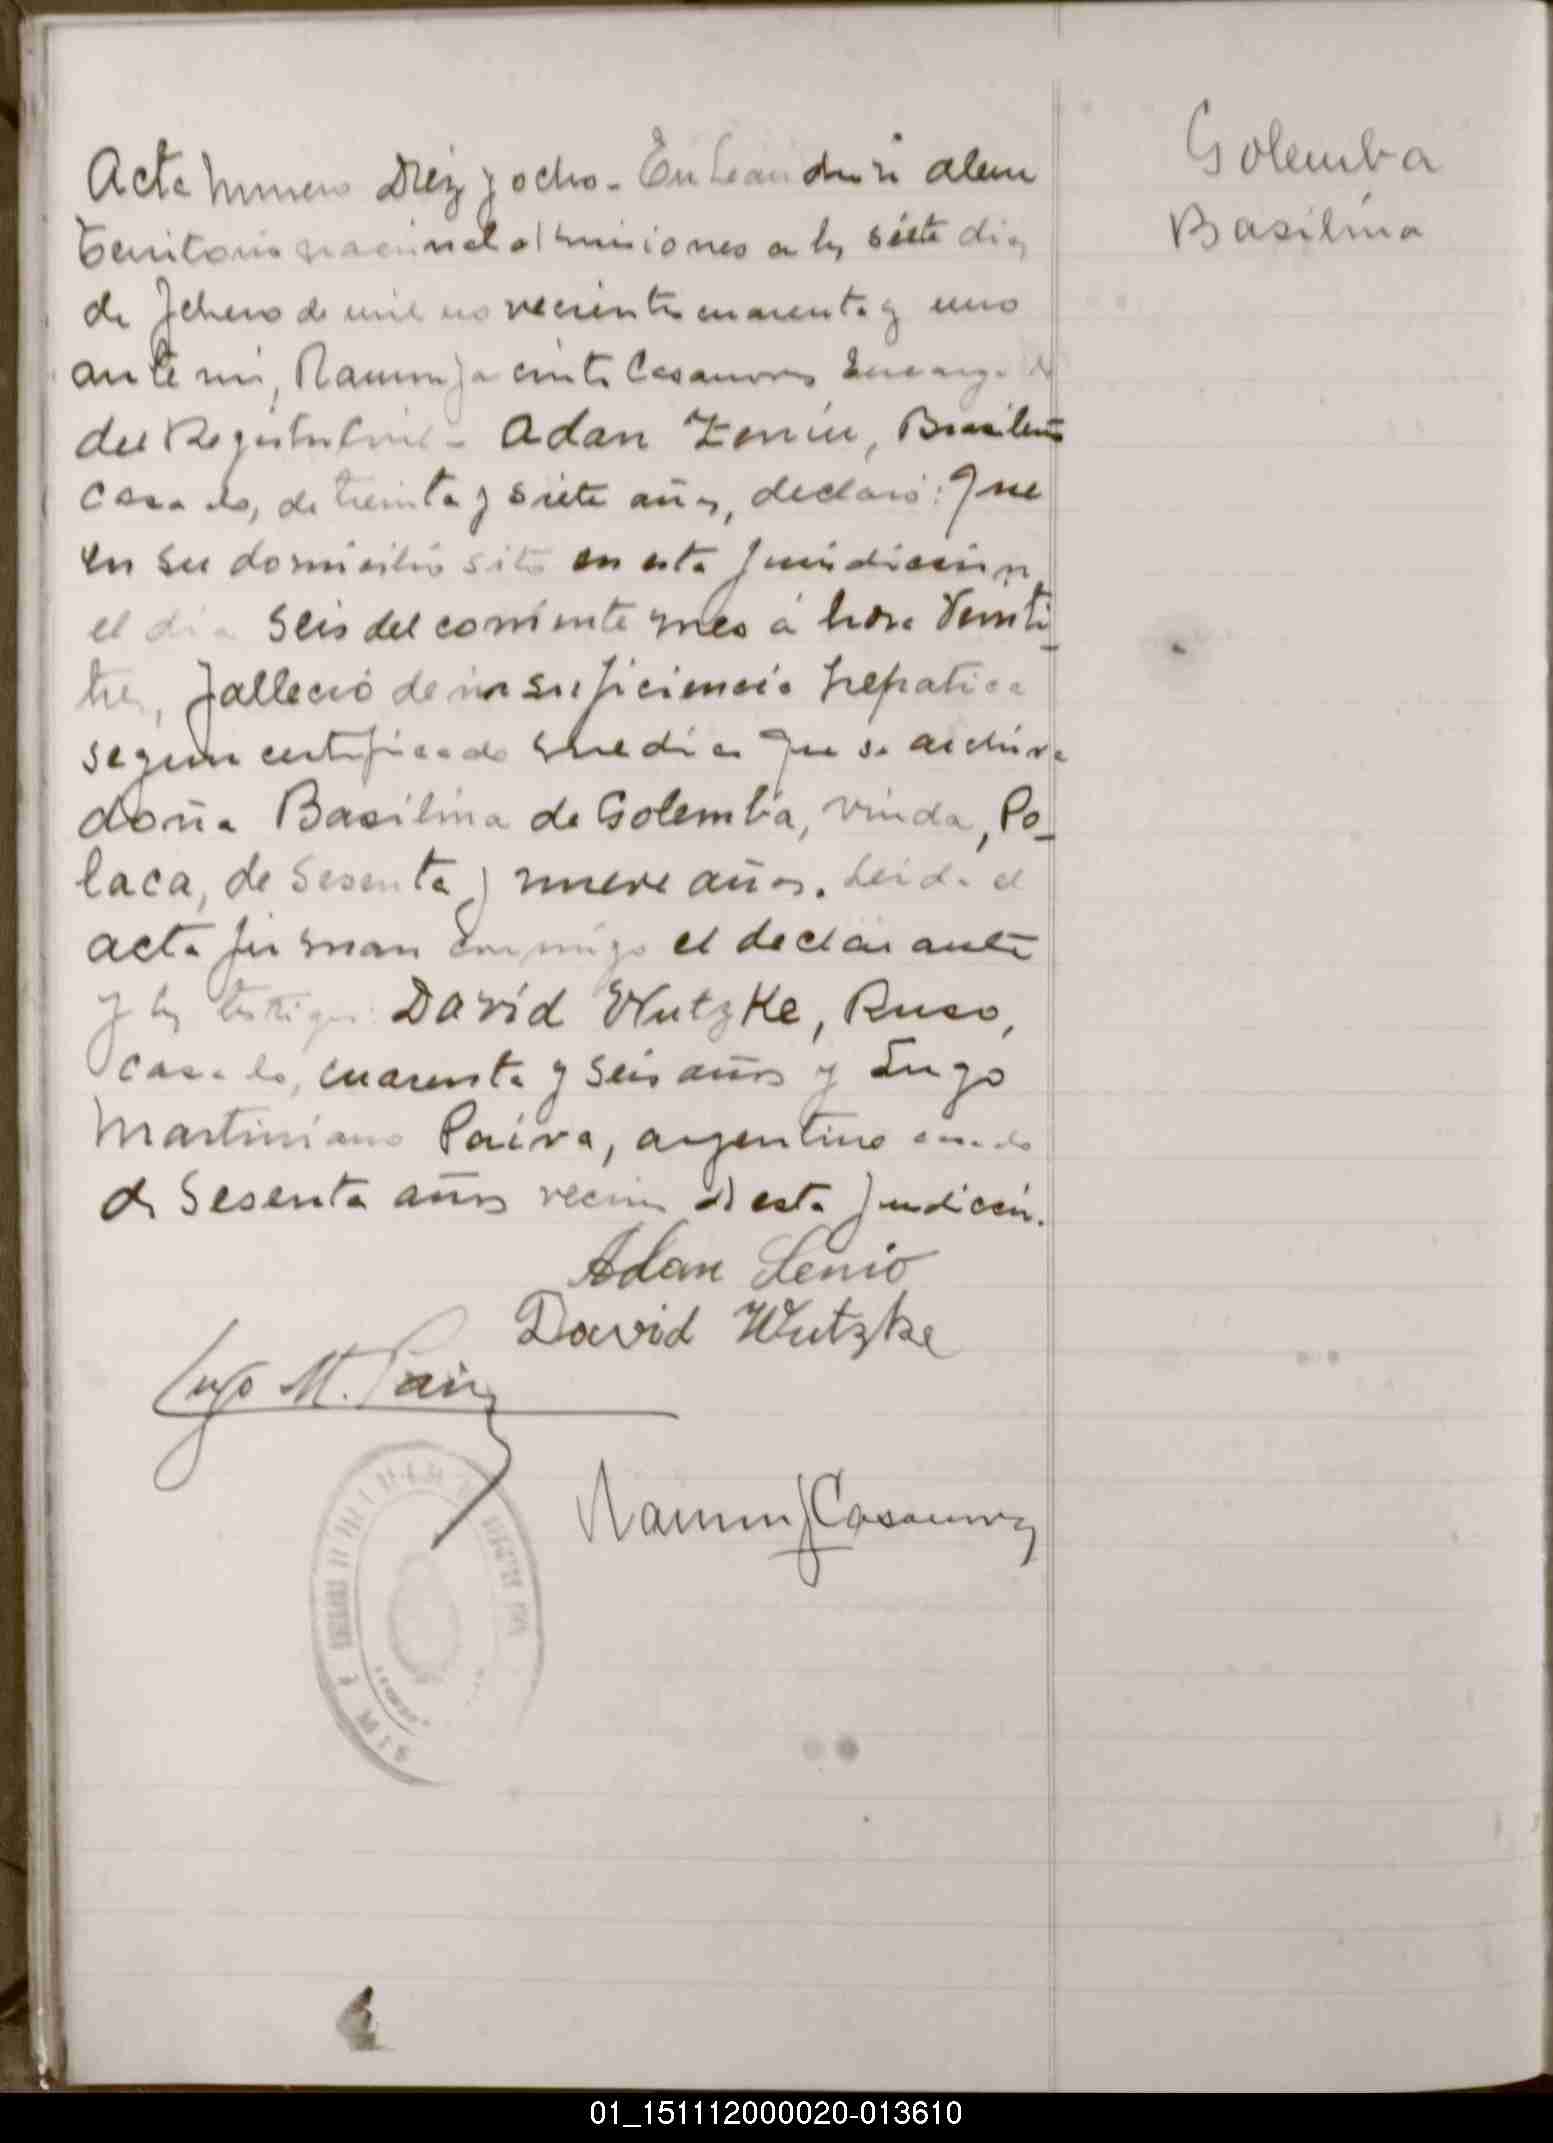 Golemba
Basilina
Acta Numero Diez y ocho - En Leandro N alem
territorio nacional de misiones a los siete dias
de febrero de mil novecientos cuarenta y uno
ante mi, Ramon Jacinto Casanova Encargado
del Registro Civil - Adan Zeniu, Brasileño
casado, de treinta y siete años, declaró: Que
en su domicilio sito en esta jurisdiccion
el dia seis del corriente mes á hora veinti-
tres, falleció de insuficiencia hepatica
segun certificado medico que se archiva
doña Basilina de Golemba, viuda, Po-
laca, de sesenta y nueve años. Leida el
acta firman conmigo el declarante
y los testigos David Wutzke, Ruso,
casado, cuarenta y seis años y Lugo
Martiniano Paiva, argentino casado
de sesenta años vecinos de esta judiccion.
Adan Senio
David Wutzke
Lugo M. Paiva
Ramon J Casanova
01_151112000020-013610